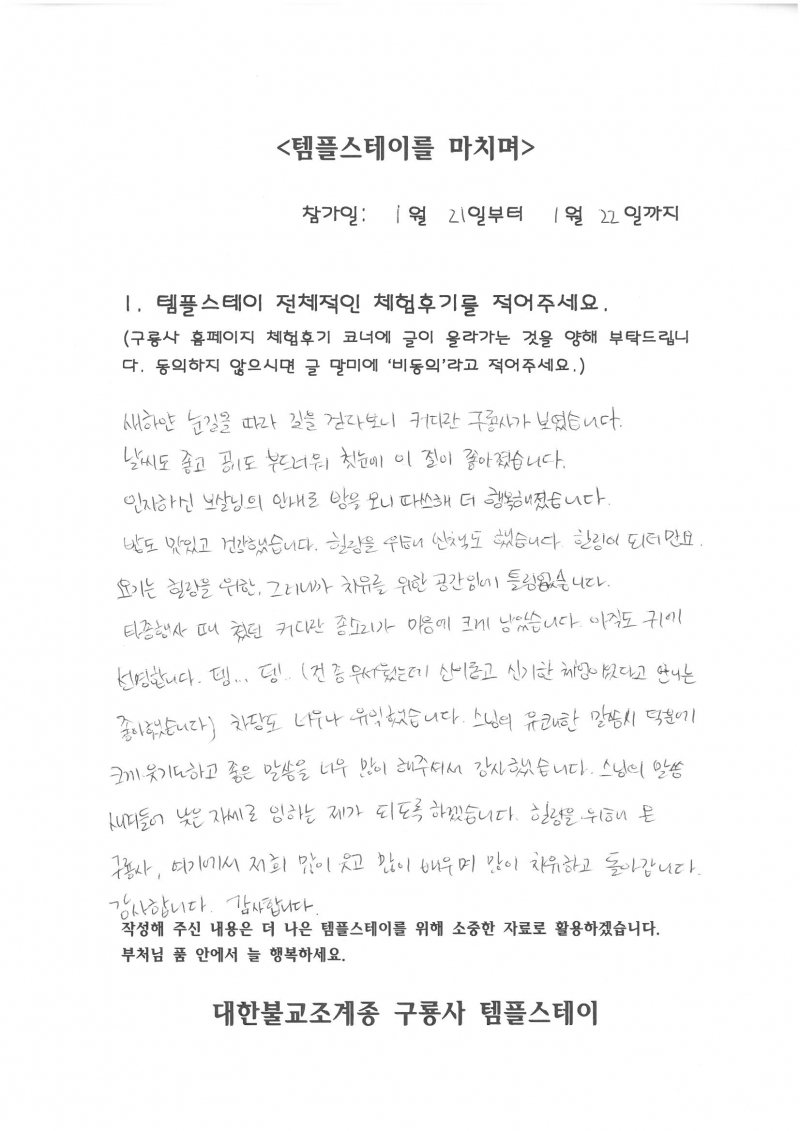 <템플스테이를 마치며>
참가일: 1월 21일부터 1월 22일까지
1. 템플스테이 전체적인 체험후기를 적어주세요.
(구룡사 홈페이지 체험후기 코너에 글이 올라가는 것을 양해 부탁드립니
다. 동의하지 않으시면 글 말미에 '비동의'라고 적어주세요.)
새하얀 눈길을 따라 길을 걷다보니 커다란 구룡사가 보였습니다.
날씨도 좋고 공기도 부드러워 첫눈에 이 절이 좋아졌습니다.
인자하신 보살님의 안내로 방을 오니 따스해 더 행복해졌습니다.
밥도 맛있고 건강했습니다. 힐링을 위해 산책도 했습니다. 힐링이 되더만요.
요기는 힐링을 위한, 그러니까 치유를 위한 공간임에 틀림없습니다.
타종행사 때 쳤던 커다란 종소리가 마음에 크게 남았습니다. 아직도 귀에
선명합니다. 뎅... 뎅.. (전 좀 무서웠는데 신비롭고 신기한 체험이었다고 언니는
좋아했습니다) 차담도 너무나 유익했습니다. 스님의 유쾌한 말씀씨 덕분에
크게 웃기도하고 좋은 말씀을 너무 많이 해주셔서 감사했습니다. 스님의 말씀
새겨들어 낮은 자세로 임하는 제가 되도록 하겠습니다. 힐링을 위해 온
구룡사, 여기에서 저희 많이 웃고 많이 배우며 많이 치유하고 돌아갑니다.
감사합니다. 감사합니다.
작성해 주신 내용은 더 나은 템플스테이를 위해 소중한 자료로 활용하겠습니다.
부처님 품 안에서 늘 행복하세요.
대한불교조계종 구룡사 템플스테이